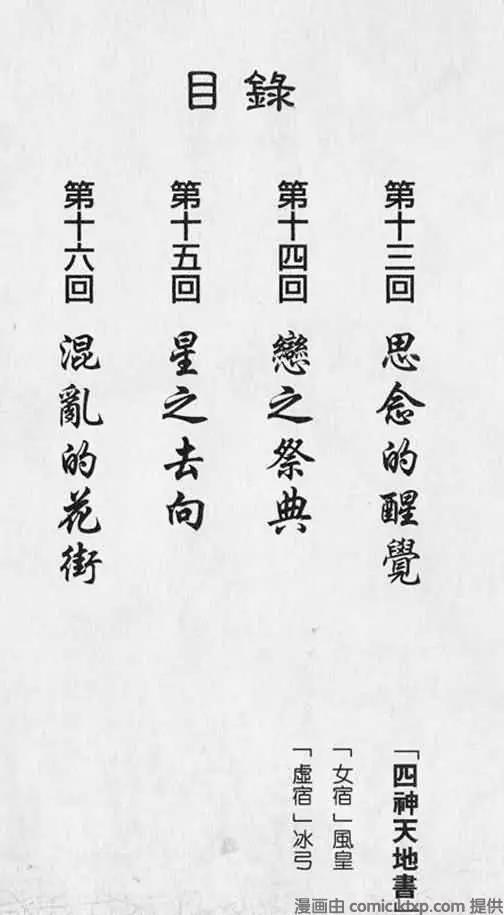 目錄
第十三回 思念的醒覺
第十四回 戀之祭典
第十五回 星之去向
第十六回 混亂的花街
「四神天地書
「女宿」風皇
「虛宿」冰弓
漫画由 comicktxp.com 提供